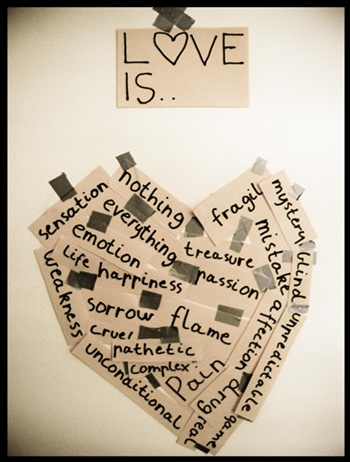 LOVE
IS..
sensation
nothing
everything
emotion
life
happiness
weakness
treasure
passion
fragil
mystery
mistake
blind
affection
unpredictable
sorrow
flame
cruel
pathetic
complex
pain
unconaitional
drug
real
game